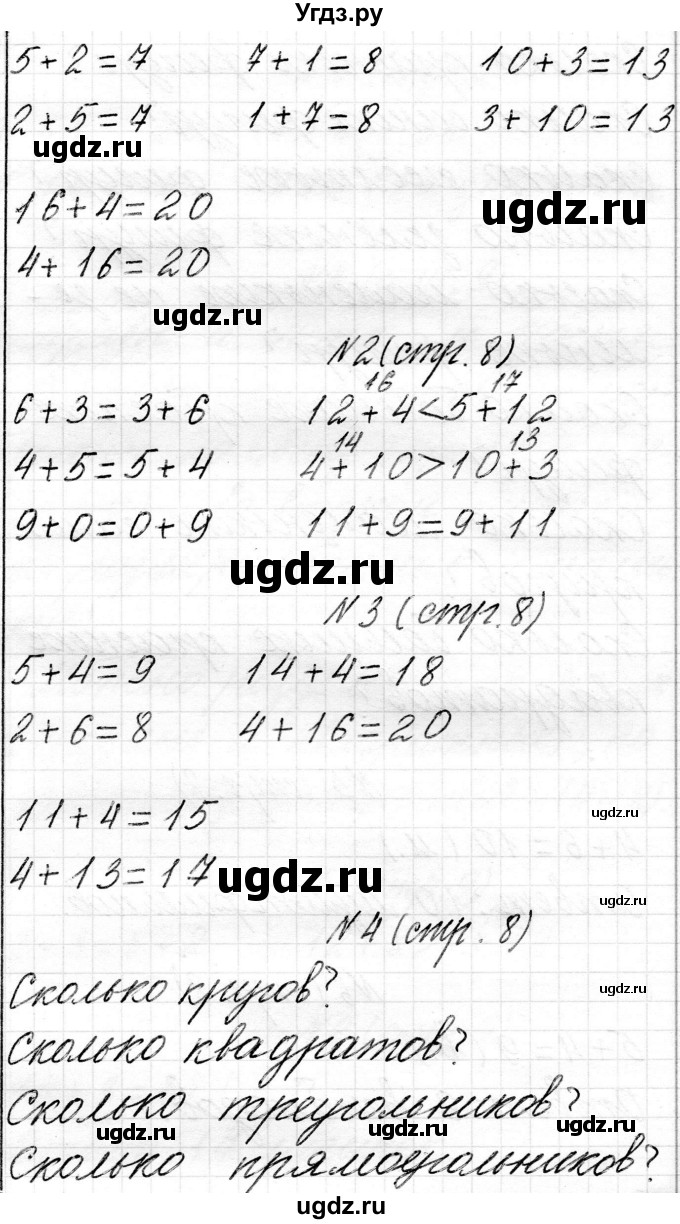 Угдз.ру
5+2=7 7+1=8 10+3=13
2+5=7 1+7=8 3+10=13
ugdz.ru
16+4=20 ugdz.ru
4+16=20
ugdz.ru
№2 (стр. 8)
16 17
6+3=3+6 12+4<5+12
14 13
4+5=5+4 4+10>10+3
9+0=0+9 11+9=9+11
ugdz.ru
№3 (стр. 8)
5+4=9 14+4=18
2+6=8 4+16=20
11+4=15 ugdz.ru
4+13=17 ugdz.ru
ugdz.ru
№4 (стр. 8)
Сколько кругов? ugdz.ru
Сколько квадратов?
Сколько треугольников?
ugdz.ru ugdz.ru ugdz.ru
Сколько прямоугольников?
ugdz.ru